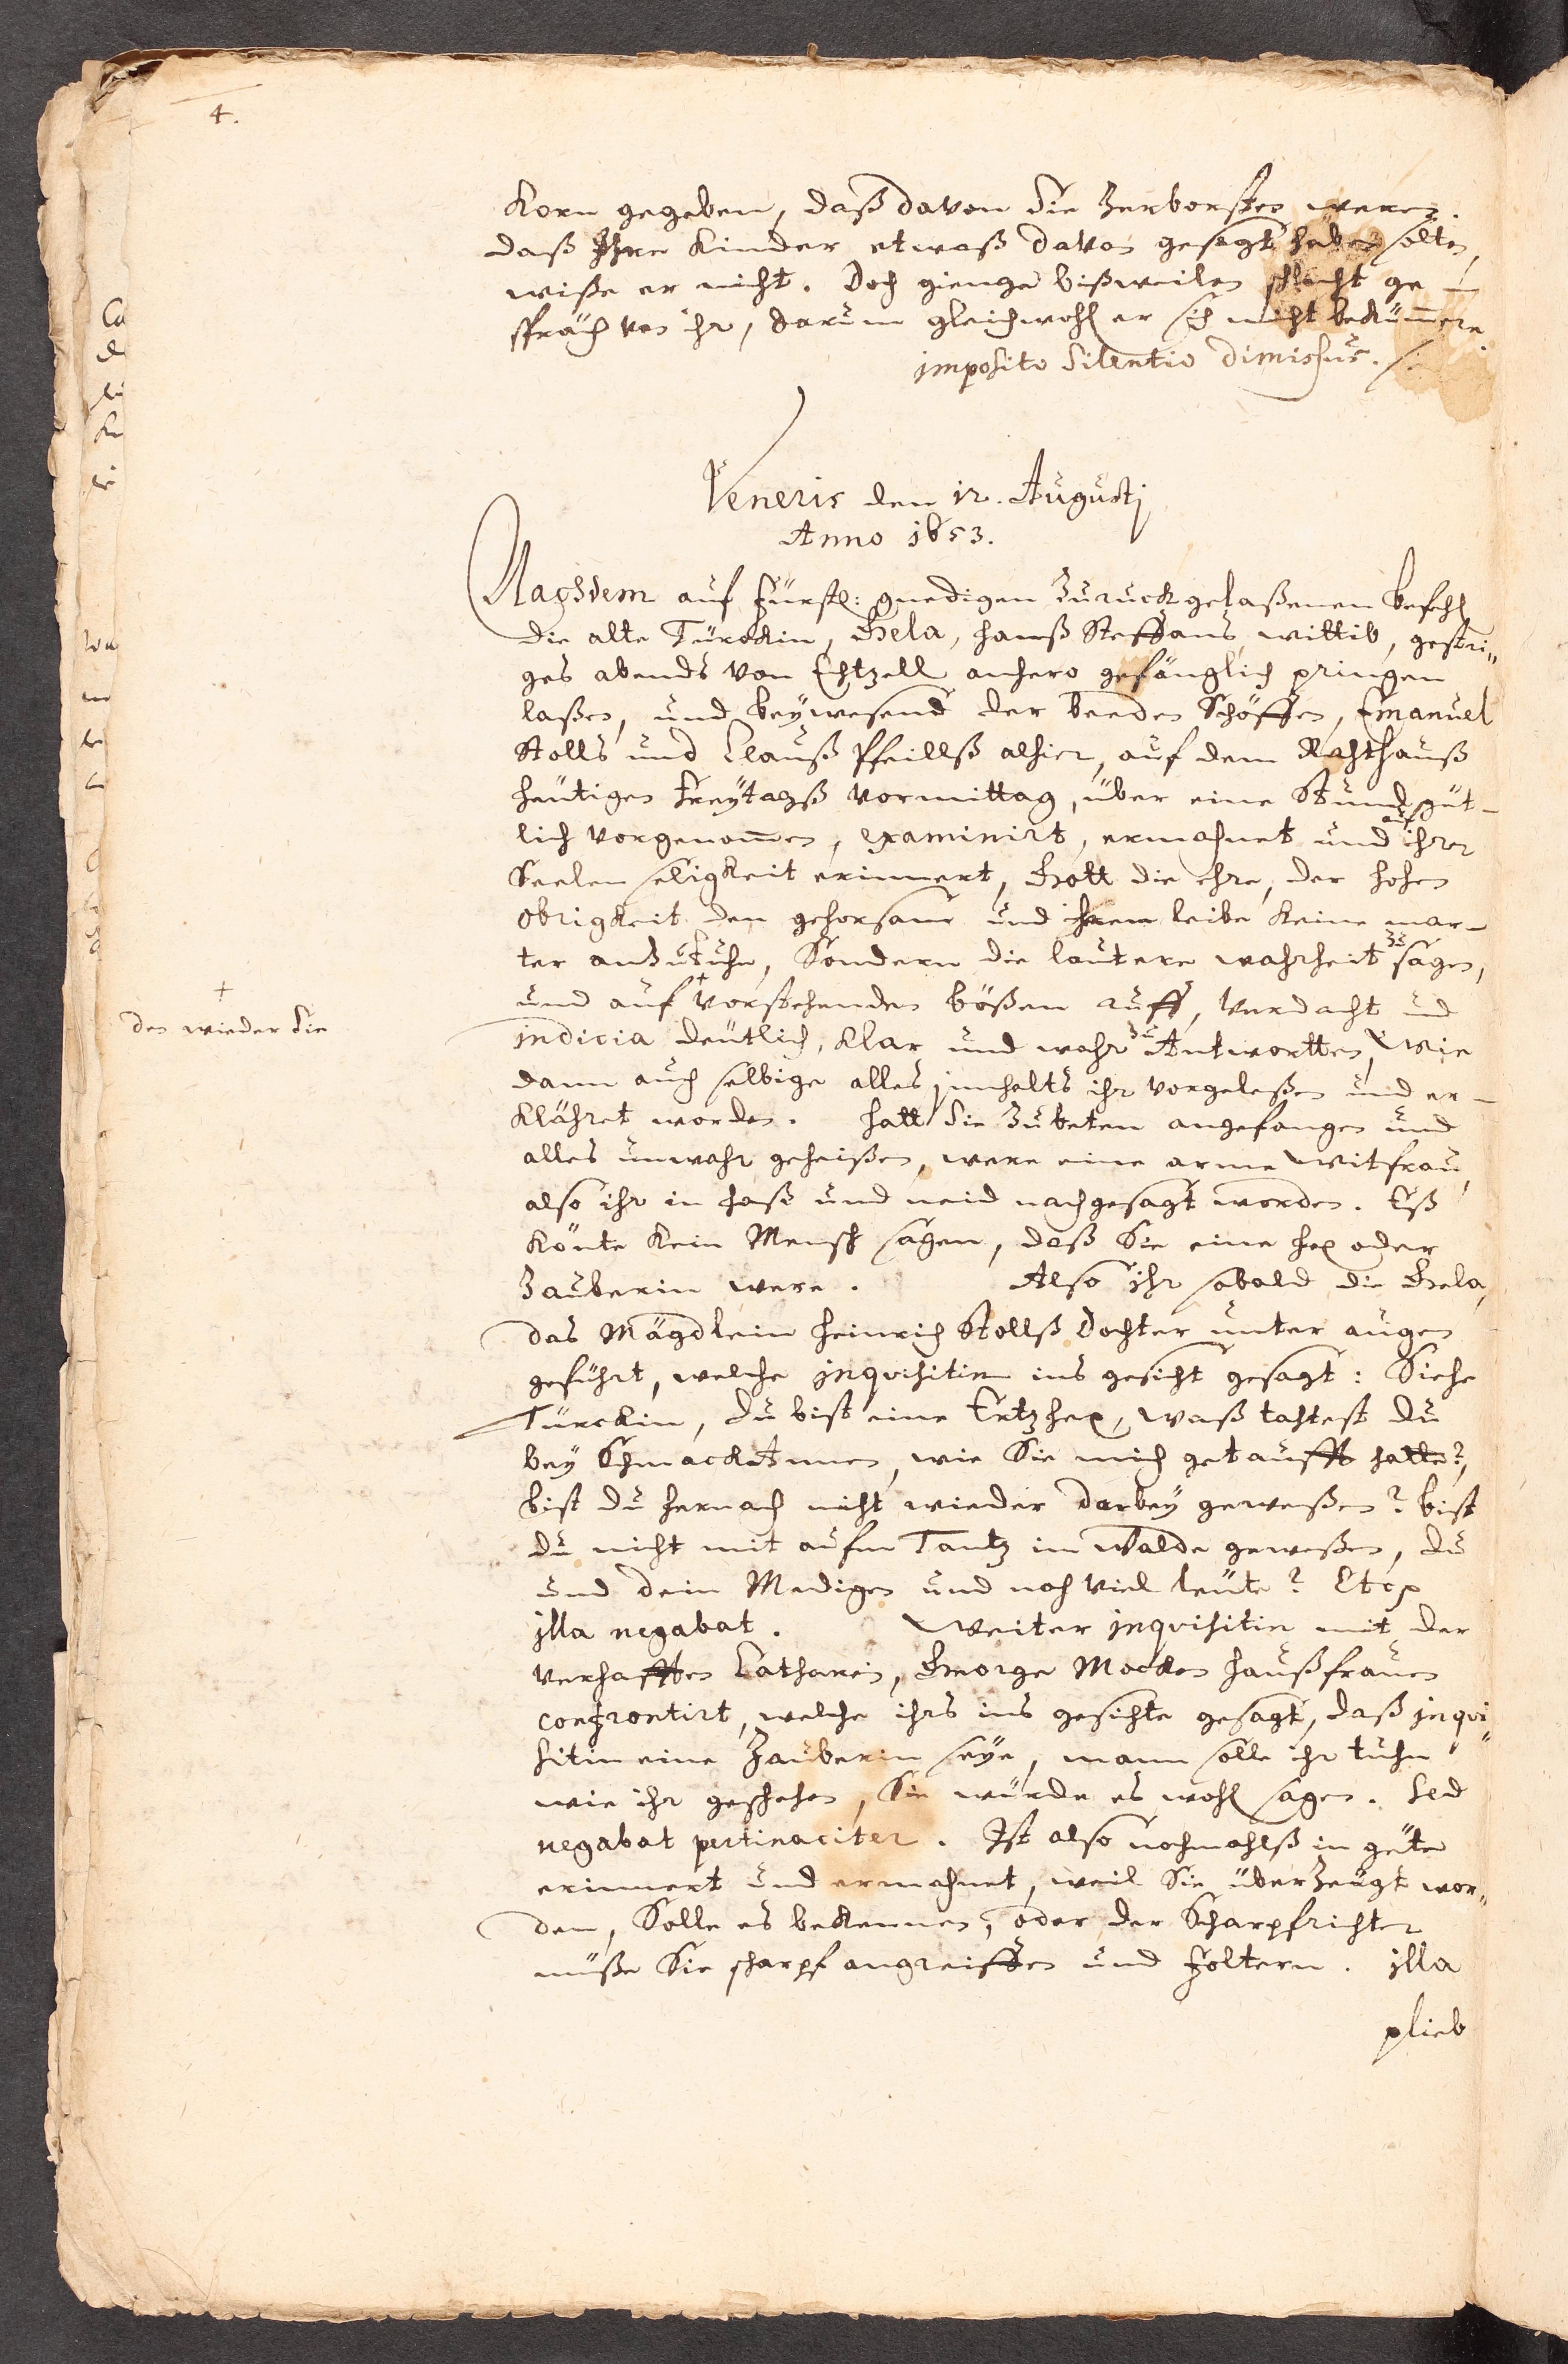 4.
Korn gegeben, daß davon sie zerborsten weren.
daß Ihre Kinder etwaß davon gesagt haben solten,
wiße er nicht. Doch gienge bißweilen schlecht ge-
spräch von ihr, darumb gleichwohl er sich nicht bekümmere.
imposito silentio dimissus.
Veneris den 12. Augustj
Anno 1653.
Nachdem auf Fürstl: gnedigen zuruckgelaßenen befehl
die alte Türckin, Gela, hanß Steffans wittib, gestri„
ges abends von Echtzell anhero gefänglich pringen
laßen, und beywesend der beeden Schöffen, Emanuel
Stolls und Clauß Pfeillß alhier, auf dem Rahthauß
heutigen Freytagß vormittag, über eine Stund güt-
lich vorgenommen, examinirt, ermahnet und auf ihrer
Seelen seligkeit erinnert, Gott die ehre, der hohen
obrigkeit den gehorsam und ihrem leibe keine mar-
ter anzutuhn, Sondern die lautere wahrheit zu sagen,
und auf + vorstehenden bößen ruff, verdacht und
+
den wieder sie
indicia deutlich, klar und wahr zu Antwortten, Wie
dann auch selbige alles innhalts ihr vorgeleßen und er-
klähret worden. hatt sie zubeten angefangen und
alles unwahr geheißen, were eine arme Witfrau,
also ihr in haß und neid nachgesagt worden. Eß
könte kein Mensch sagen, daß Sie eine hex oder
Zauberin were. Also ihr sobald die Gela,
das Mägdlein heinrich Stollß dochter unter augen
geführt, welche inquisitin ins gesicht gesagt: Siehe
Türckin, du bist eine Ertzhex, waß tahtest du
bey Schmackstnnen, wie Sie mich getaufft hatte?,
bist du hernach nicht wieder darbey geweßen? bist
du nicht mit aufm Tantz im Walde geweßen, du
und dein Medigen und noch viel leute? Et cx
illa negabat. Weiter inquisitin mit der
verhafften Catharein, George Mocken haußfrauen
confrontirt, welche ihrs ins gesichte gesagt, daß inqui„
sitin eine Zauberin seye, mann solle ihr tuhn
wie ihr geschehen, Sie würde es wohl sagen. Sed
negabat pertinaciter. Ist also nochmahlß in güte
erinnert und ermahnet, weil Sie überzeugt wor„
den, Solle es bekennen, oder der Scharpfrichter
müße Sie scharpf angreiffen und foltern. illa
plieb